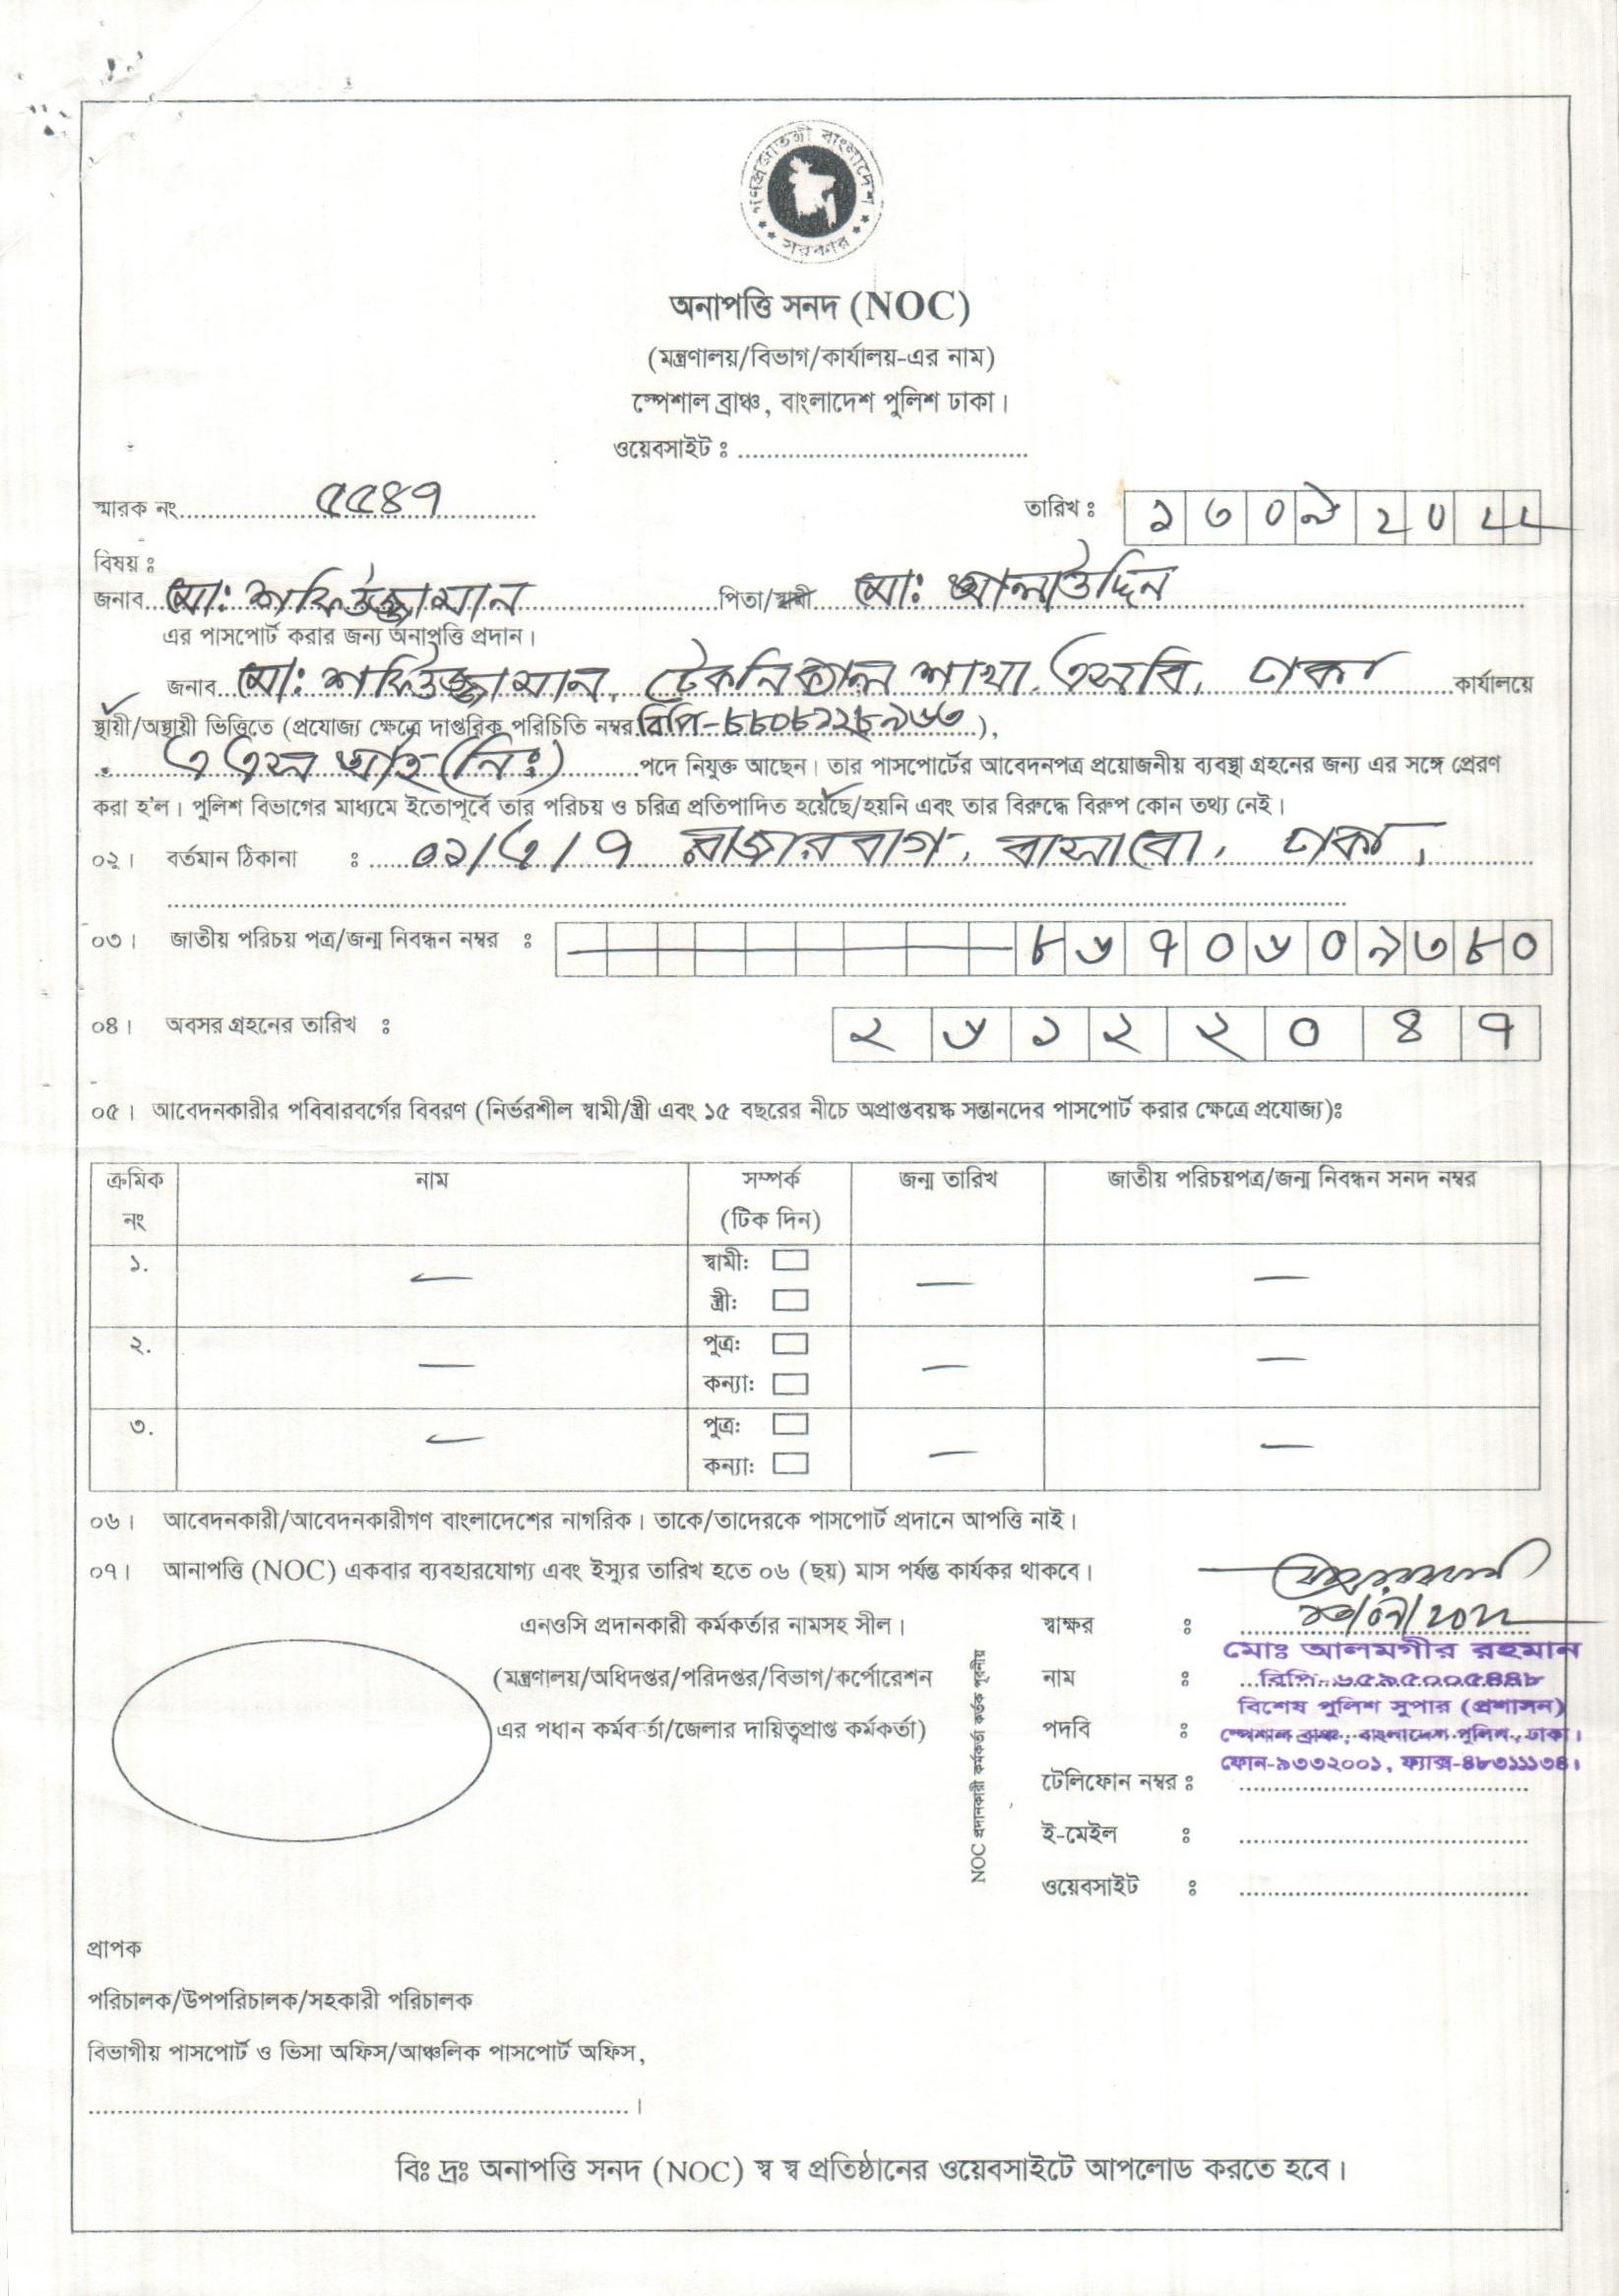 গণপ্রজাতন্ত্রী বাংলাদেশ
সরকার
অনাপত্তি সনদ (NOC)
(মন্ত্রণালয়/বিভাগ/কার্যালয়-এর নাম)
স্পেশাল ব্রাঞ্চ, বাংলাদেশ পুলিশ ঢাকা।
ওয়েবসাইট ঃ
স্মারক নং ৫৫৪৭ তারিখ ঃ ১৩০৯২০২২
বিষয় ঃ
জনাব মো: শফিউজ্জামান পিতা/স্বামী মো: আলাউদ্দিন
এর পাসপোর্ট করার জন্য অনাপত্তি প্রদান।
জনাব মো: শফিউজ্জামান, টেকনিক্যাল শাখা, এসবি, ঢাকা কার্যালয়ে
স্থায়ী/অস্থায়ী ভিত্তিতে (প্রযোজ্য ক্ষেত্রে দাপ্তরিক পরিচিতি নম্বর বিপি-৮৮০৮১২৮৯৬৩),
এ এস আই (নিঃ) পদে নিযুক্ত আছেন। তার পাসপোর্টের আবেদনপত্র প্রয়োজনীয় ব্যবস্থা গ্রহনের জন্য এর সঙ্গে প্রেরণ
করা হ'ল। পুলিশ বিভাগের মাধ্যমে ইতোপূর্বে তার পরিচয় ও চরিত্র প্রতিপাদিত হয়েছে/হয়নি এবং তার বিরুদ্ধে বিরুপ কোন তথ্য নেই।
০২। বর্তমান ঠিকানা ঃ ০২/৩/৭ রাজারবাগ, বাসাবো, ঢাকা,
০৩। জাতীয় পরিচয় পত্র/জন্ম নিবন্ধন নম্বর ঃ ৮৬৭০৬০৯৩৮০
০৪। অবসর গ্রহনের তারিখ ঃ ২৬১২২০৪৭
০৫। আবেদনকারীর পবিবারবর্গের বিবরণ (নির্ভরশীল স্বামী/স্ত্রী এবং ১৫ বছরের নীচে অপ্রাপ্তবয়স্ক সন্তানদের পাসপোর্ট করার ক্ষেত্রে প্রযোজ্য)ঃ
ক্রমিক নং নাম সম্পর্ক (টিক দিন) জন্ম তারিখ জাতীয় পরিচয়পত্র/জন্ম নিবন্ধন সনদ নম্বর
১. — স্বামী: — —
স্ত্রী:
২. — পুত্র: — —
কন্যা:
৩. — পুত্র: — —
কন্যা:
০৬। আবেদনকারী/আবেদনকারীগণ বাংলাদেশের নাগরিক। তাকে/তাদেরকে পাসপোর্ট প্রদানে আপত্তি নাই।
০৭। আনাপত্তি (NOC) একবার ব্যবহারযোগ্য এবং ইস্যুর তারিখ হতে ০৬ (ছয়) মাস পর্যন্ত কার্যকর থাকবে।
এনওসি প্রদানকারী কর্মকর্তার নামসহ সীল।
(মন্ত্রণালয়/অধিদপ্তর/পরিদপ্তর/বিভাগ/কর্পোরেশন
এর পধান কর্মকর্তা/জেলার দায়িত্বপ্রাপ্ত কর্মকর্তা)
NOC প্রদানকারী কর্মকর্তা কর্তৃক পূরনীয়
স্বাক্ষর ঃ ১৩/০৯/২০২২
মোঃ আলমগীর রহমান
নাম ঃ বিপি-৬৫৯৫০০৫৪৪৮
বিশেষ পুলিশ সুপার (প্রশাসন)
পদবি ঃ স্পেশাল ব্রাঞ্চ, বাংলাদেশ পুলিশ, ঢাকা।
ফোন-৯৩৩২০০১, ফ্যাক্স-৪৮৩১১১৩৪।
টেলিফোন নম্বর ঃ
ই-মেইল ঃ
ওয়েবসাইট ঃ
প্রাপক
পরিচালক/উপপরিচালক/সহকারী পরিচালক
বিভাগীয় পাসপোর্ট ও ভিসা অফিস/আঞ্চলিক পাসপোর্ট অফিস,
বিঃ দ্রঃ অনাপত্তি সনদ (NOC) স্ব স্ব প্রতিষ্ঠানের ওয়েবসাইটে আপলোড করতে হবে।